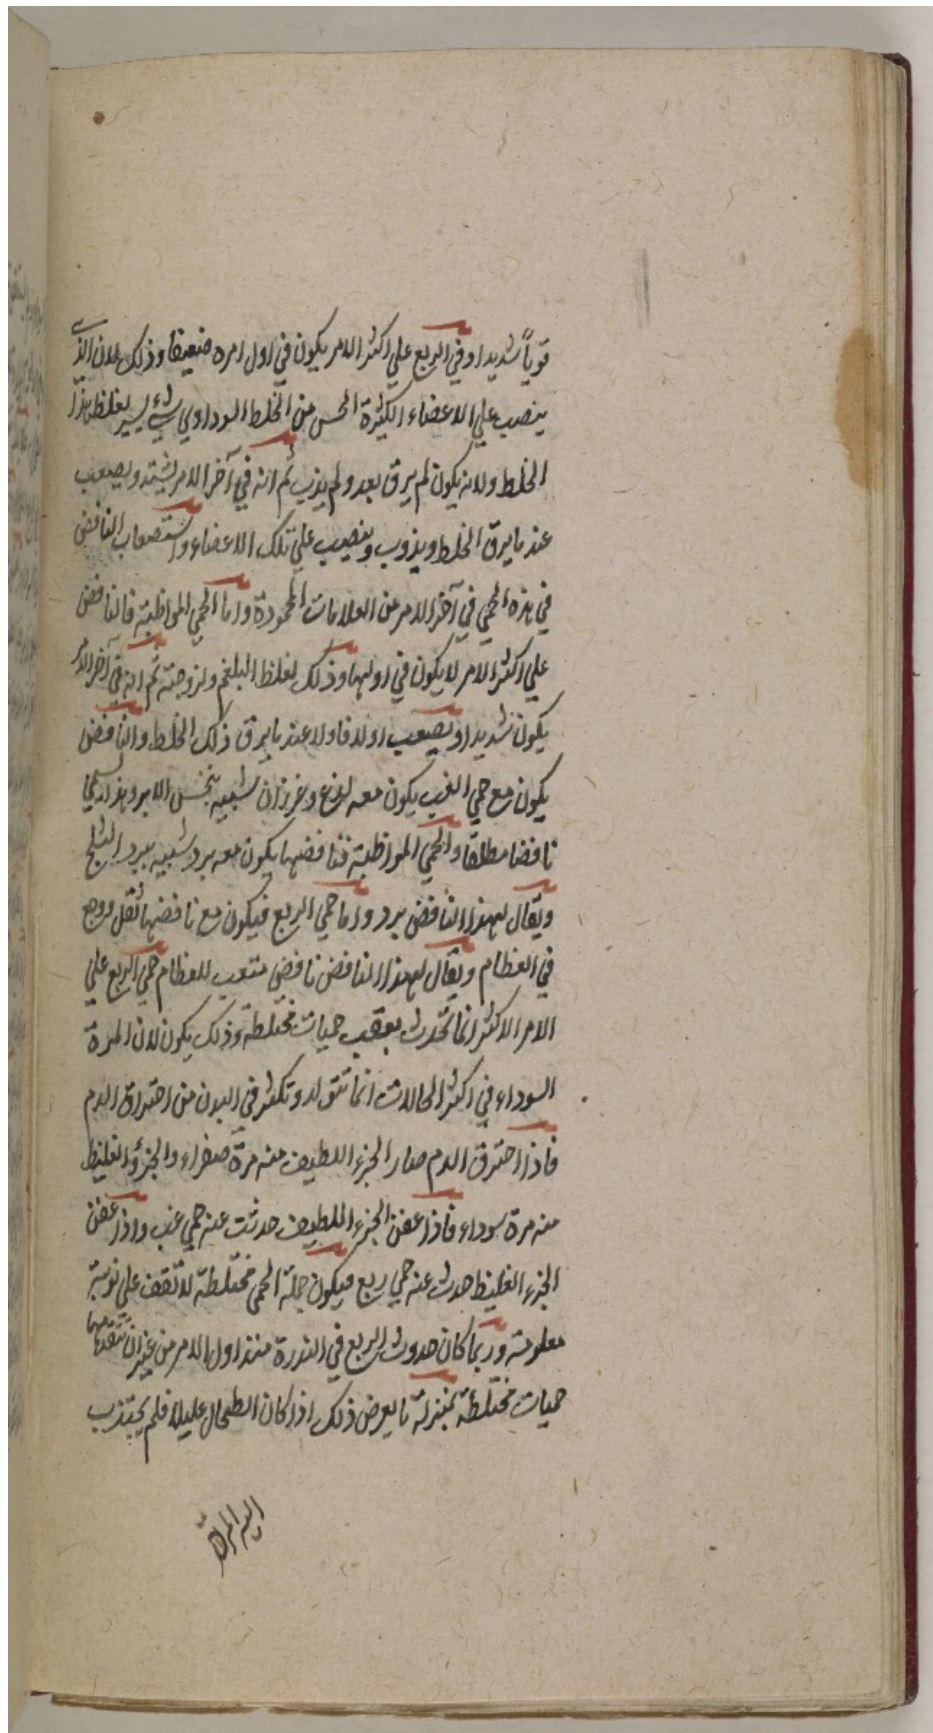 قوياً شديدا وفي الربع علي اكثر الامر يكون في اول امره ضعيفا وذلك لان الذي
ينصب علي الاعضاء الكثيرة الحس من الخلط السوداوي شيء يسير لغلظ هذا
الخلط ولانه يكون لم يرق بعد ولم يذب ثم انه في آخر الامر يشتد ويصعب
عند ما يرق الخلط ويذوب وينصب علي تلك الاعضاء واستصعاب النافض
في هذه الحمي في آخر الامر من العلامات المحمودة واما الحمي المواظبة فالنافض
علي اكثر الامر لا يكون في اولها وذلك لغلظ البلغم ولزوجته ثم انه في آخر الامر
يكون شديدا ويصعب اولا فاولا عند ما يرق ذلك الخلط والنافض
يكون مع حمي الغب يكون معه لذع وغرزان شبيه بنخس الابر وهذا يسمي
نافضا مطلقا والحمي المواظبة فنافضها يكون معه برد شبيه ببرد الثلج
ويقال لهذا النافض برد واما حمي الربع فيكون مع نافضها ثقل ووجع
في العظام ويقال لهذا النافض نافض متعب للعظام حمي الربع علي
الامر الاكثر انما تحدث بعقب حميات مختلطة وذلك يكون لان المرة
السوداء في اكثر الحالات انما تتولد وتكثر في البدن من احتراق الدم
فاذا احترق الدم صار الجزء اللطيف منه مرة صفراء والجزؤ الغليظ
منه مرة سوداء فاذا عفن الجزء اللطيف حدثت عنه حمي غب واذا عفن
الجزء الغليظ حدث عنه حمي ربع فيكون جملة الحمي مختلطة لا تقف علي نوبة
معلومة وربما كان حدوث الربع في الندرة منذ اول الامر من غير ان تتقدمها
حميات مختلطة بمنزلة ما يعرض ذلك اذا كان الطحال عليلا فلم يجتذب
اليه المرة